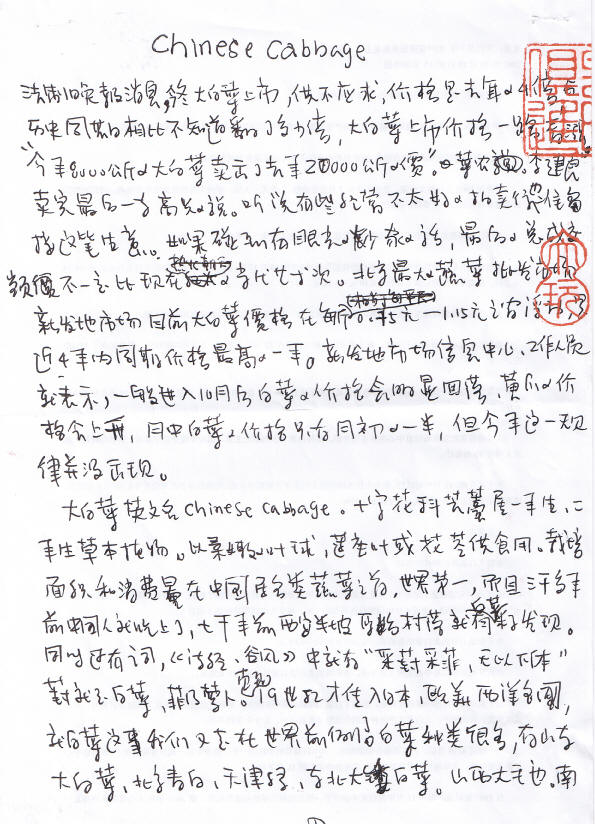 Chinese Cabbage
法制晚报消息,终大白菜上市,供不应求,价格是去年的4倍与
历史同期相比不知道翻了多少倍,大白菜上市价格一路
"今年8000公斤的大白菜卖出了去年20000公斤的價"。李建良
卖完最后一车高兴的说。听说有些经营不太好的拍卖行
接这笔生意。如果碰到有眼光的收藏家的话,最后的总成交
额價不一定比现在的当代廿次。北京最大的蔬菜批发市场
新发地市场目前大白菜價格在每斤0.95元—1.15元之间浮动,
近4年内同期价格最高的一年。新发地市场信息中心工作人员
就表示,一般进入10月后白菜的价格会明显回落,黄瓜的价
格会上升,月中白菜的价格只有月初的一半,但今年这一规
律并没出现。
大白菜英文名Chinese Cabbage。十字花科芸薹属一年生、二
年生草本植物。以柔嫩的叶球、莲座叶或花茎供食用。栽培
面积和消费量在中国居各类蔬菜之首,世界第一,而且三千多年
前中国人就吃上了,七千年前西安半坡原始村落就有白菜籽发现。
同时还有词,《诗经、谷风》中就有"采葑采菲,无以下体"
葑就是白菜,菲乃萝卜。19世纪才传入日本,欧美西洋各國,
就白菜这事我们又走在世界前例。白菜种类很多,有山东
大白菜,北京青白,天津绿,东北大白菜。山西大毛边。南